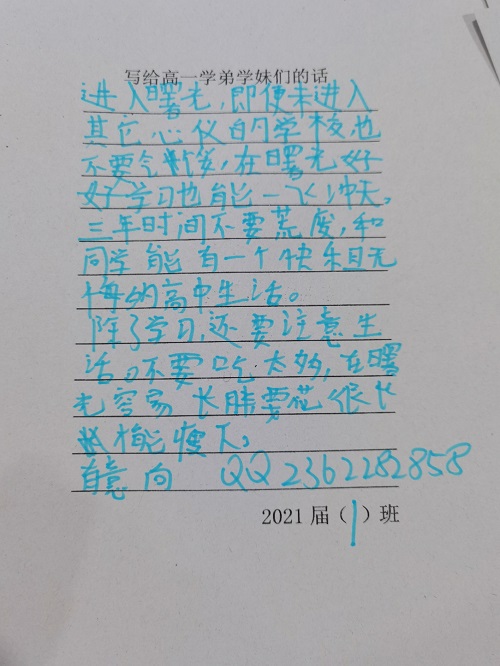 写给高一学弟学妹们的话
进入曙光,即便未进入
其它心仪的学校也
不要气馁,在曙光好
好学习也能一飞冲天。
三年时间不要荒废,和
同学能有一个快乐且无
悔的高中生活。
除了学习,还要注意生
活。不要吃太多,在曙
光容易长胖要花很长
才能瘦下。
有意向 QQ2362282858
2021届(1)班